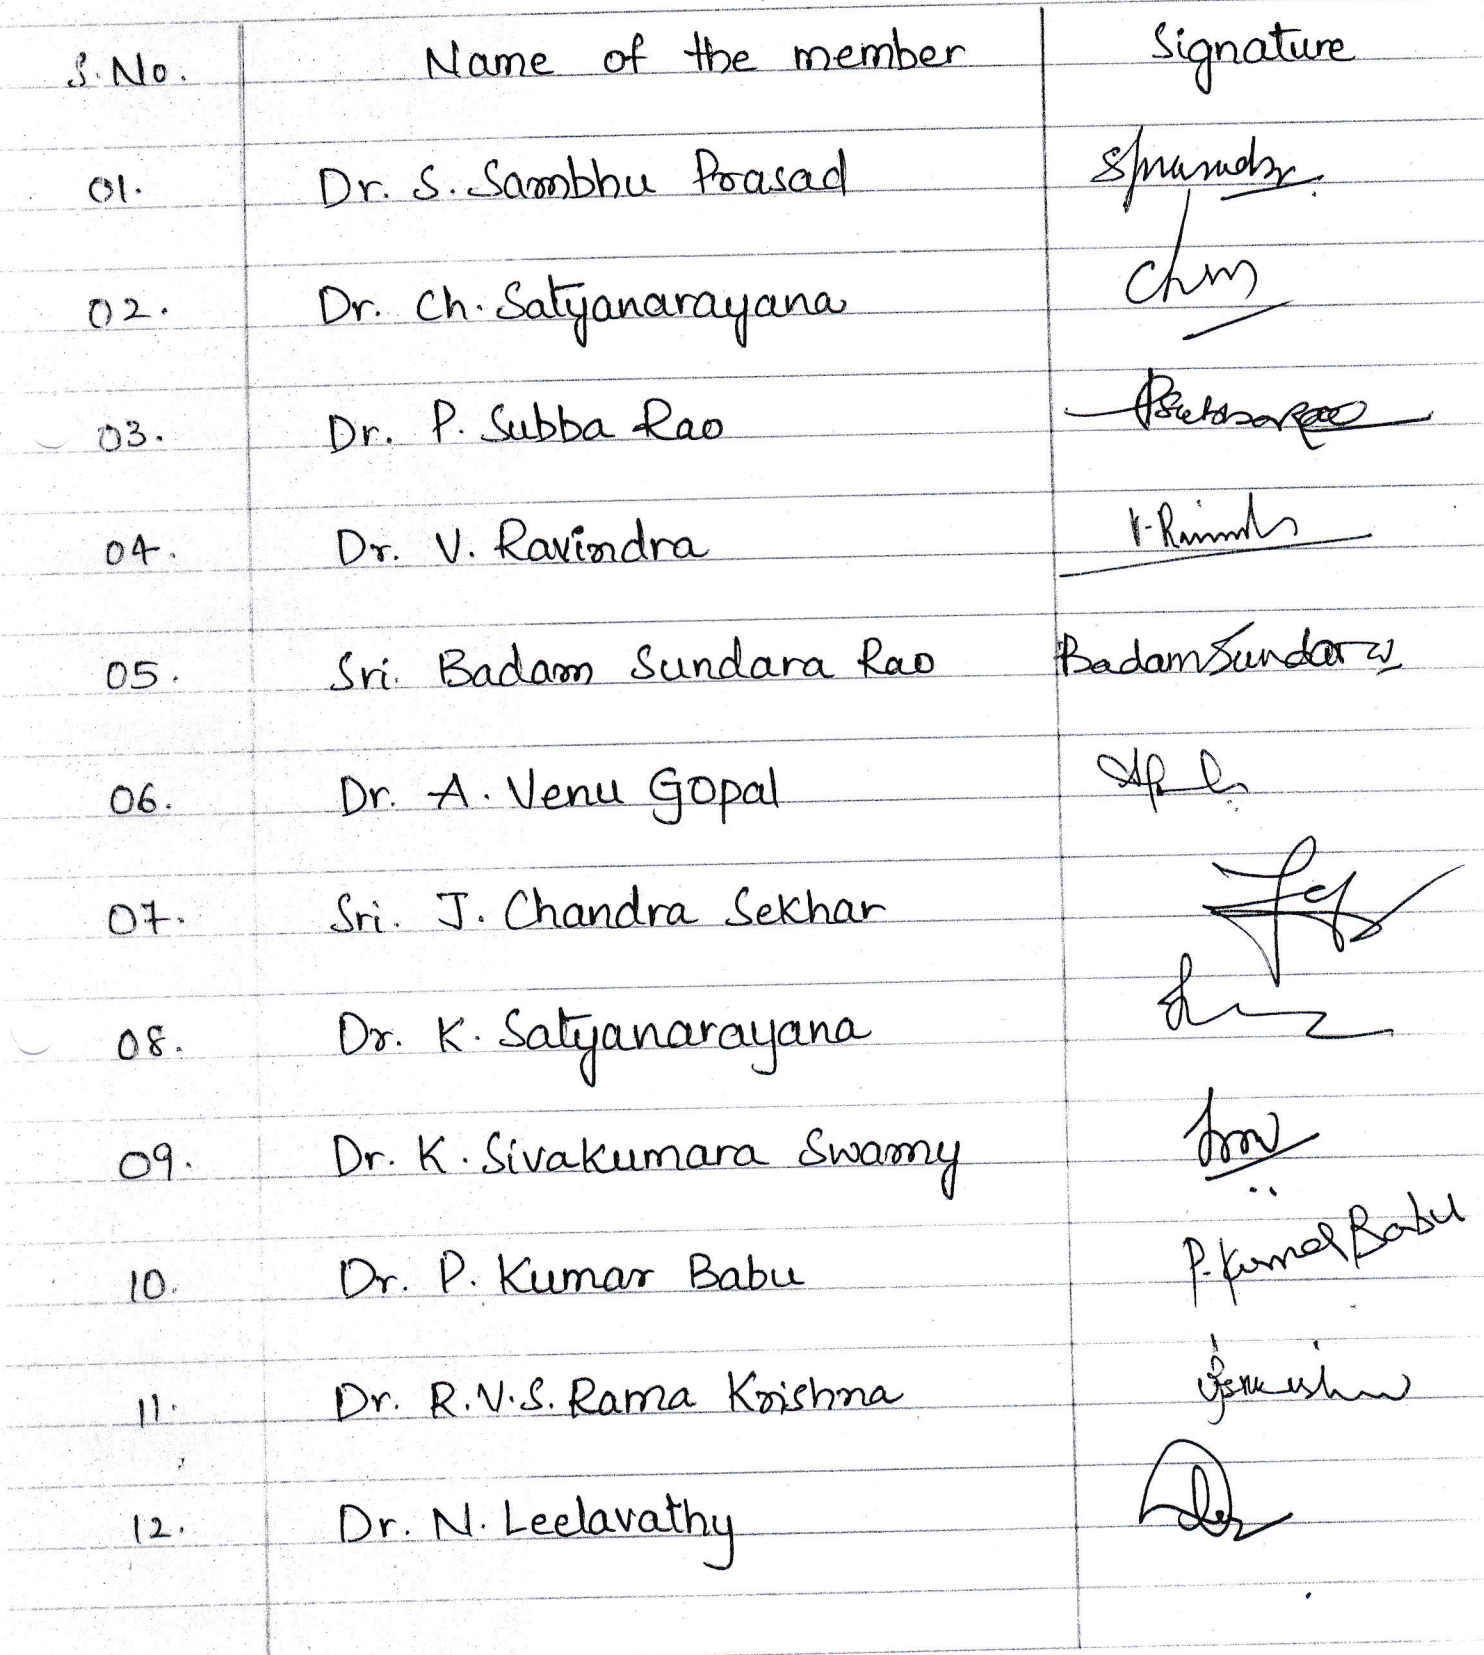 S.No. Name of the member Signature
01. Dr. S. Sambhu Prasad
02. Dr. Ch. Satyanarayana
03. Dr. P. Subba Rao PSubbaRao
04. Dr. V. Ravindra
05. Sri. Badam Sundara Rao Badam Sundara
06. Dr. A. Venu Gopal
07. Sri. J. Chandra Sekhar
08. Dr. K. Satyanarayana
09. Dr. K. Sivakumara Swamy
10. Dr. P. Kumar Babu P. Kumar Babu
11. Dr. R.V.S. Rama Krishna
12. Dr. N. Leelavathy